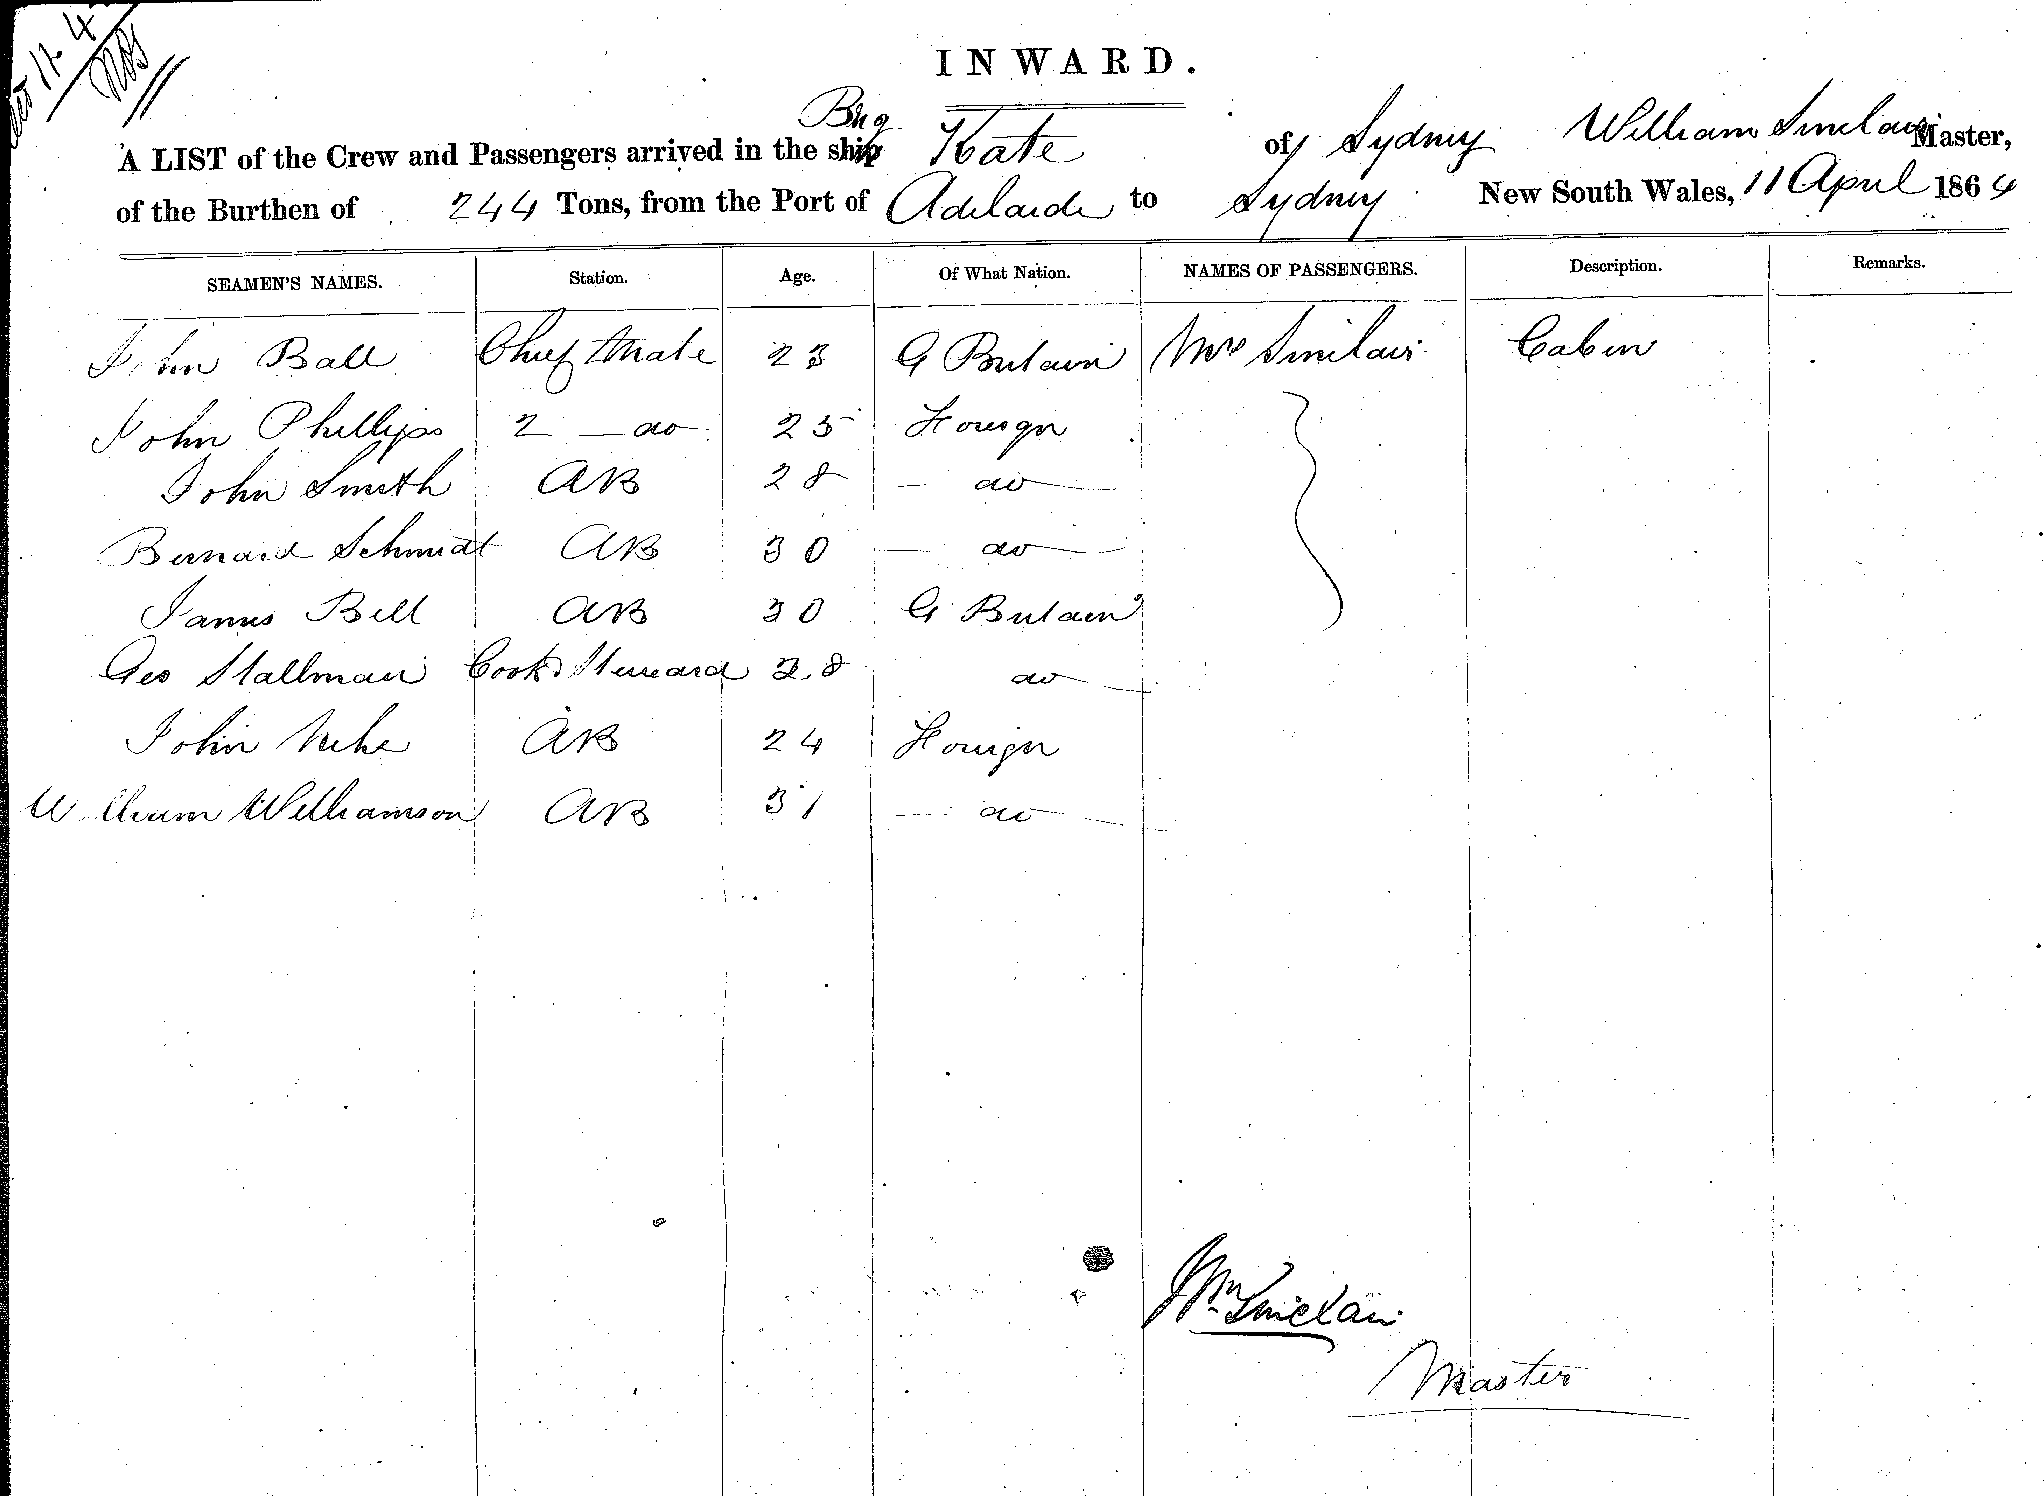 INWARD.
Brig
A LIST of the Crew and Passengers arrived in the ship Kate of Sydney William Sinclair Master,
of the Burthen of 244 Tons, from the Port of Adelaide to Sydney New South Wales, 11 April 1864
SEAMEN'S NAMES. Station. Age. Of What Nation. NAMES OF PASSENGERS. Description. Remarks.
John Ball Chief Mate 23 G Britain Mrs Sinclair Cabin
John Phillips 2 do 25 Foreign
John Smith AB 28 do
Bernard Schmidt AB 30 do
James Bell AB 30 G Britain
Geo Stallman Cook & Steward 28 do
John AB 24 Foreign
William Williamson AB 31 do
Wm Sinclair
Master